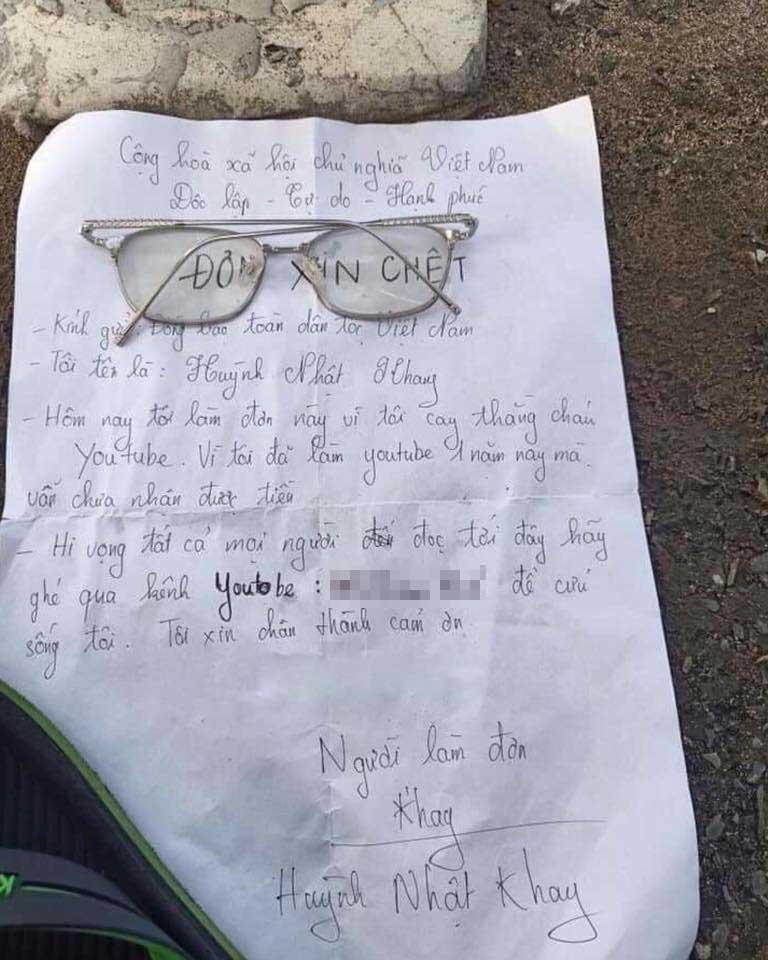 Cộng hoà xã hội chủ nghĩa Việt Nam
Độc lập - Tự do - Hạnh phúc
ĐƠN XIN CHẾT
- Kính gửi: Đồng bào toàn dân tộc Việt Nam
- Tôi tên là : Huỳnh Nhật Khay
- Hôm nay tôi làm đơn này vì tôi cay thằng cháu
Youtube. Vì tôi đã làm youtube 1 năm nay mà
vẫn chưa nhận được tiền
- Hi vọng tất cả mọi người đọc tới đây hãy
ghé qua kênh Youtobe : để cứu
sống tôi. Tôi xin chân thành cảm ơn
Người làm đơn
Khay
Huỳnh Nhật Khay